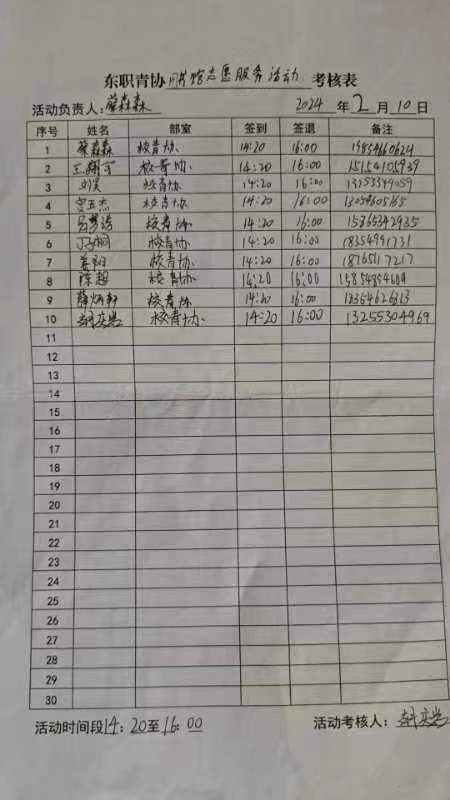 东职青协图书馆志愿服务活动考核表
活动负责人：蔡森森 2024年2月10日
序号 姓名 部室 签到 签退 备注
1 蔡森森 校青协 14:20 16:00
2 校青协 14:20 16:00 15154105939
3 刘昊 校青协 14:20 16:00
4 校青协 14:20 16:00
5 校青协 14:20 16:00 15865342935
6 校青协 14:20 16:00 18354991731
7 姜阳 校青协 14:20 16:00 18765117217
8 陈超 校青协 14:20 16:00
9 薛炳轩 校青协 14:20 16:00
10 校青协 14:20 16:00 13255304969
11
12
13
14
15
16
17
18
19
20
21
22
23
24
25
26
27
28
29
30
活动时间段14：20至16：00 活动考核人：